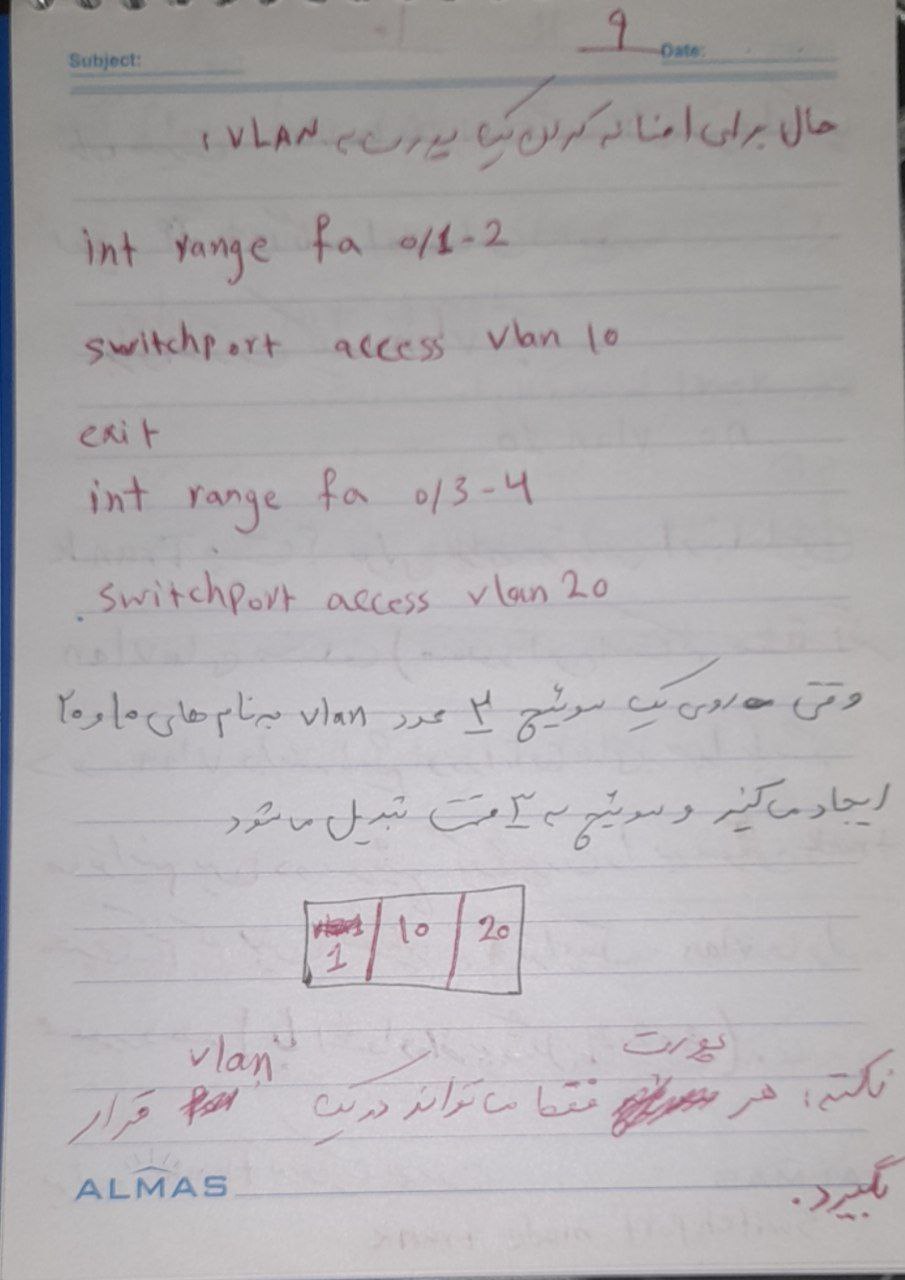 Subject:
Date:
9
حال برای اضافه کردن یک پورت به VLAN :
int range fa 0/1-2
switchport access vlan 10
exit
int range fa 0/3-4
switchport access vlan 20
وقتی روی یک سوئیچ ۲ عدد vlan به نام های ۱۰ و ۲۰
ایجاد می کنیم و سوئیچ به ۳ قسمت تبدیل می شود
1 10 20
نکته: هر پورت فقط می تواند در یک vlan قرار
بگیرد.
ALMAS